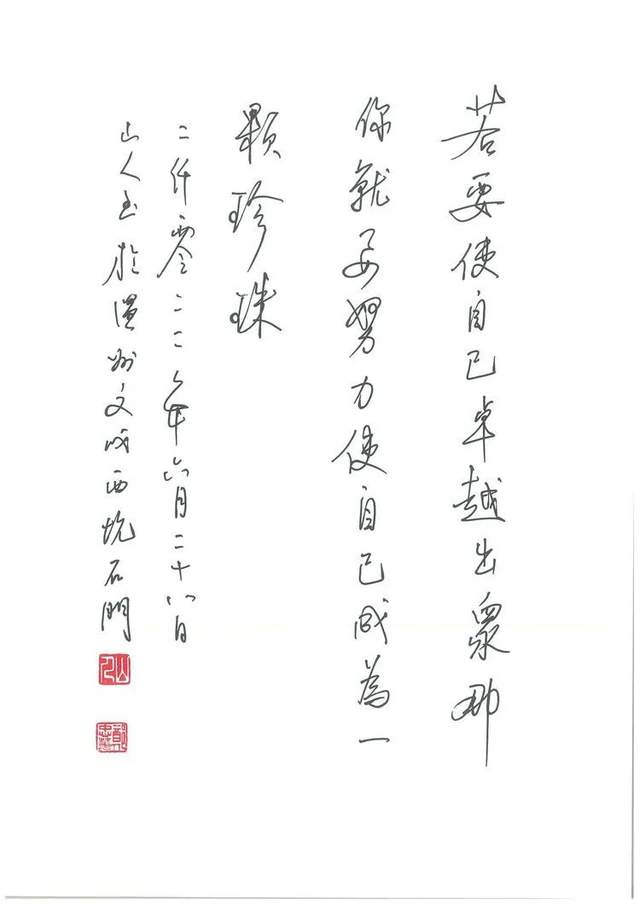 若要使自己卓越出衆那
你就要努力使自己成為一
顆珍珠
二仟零二二年六月二十八日
山人书於温州文成西坑石門
山人